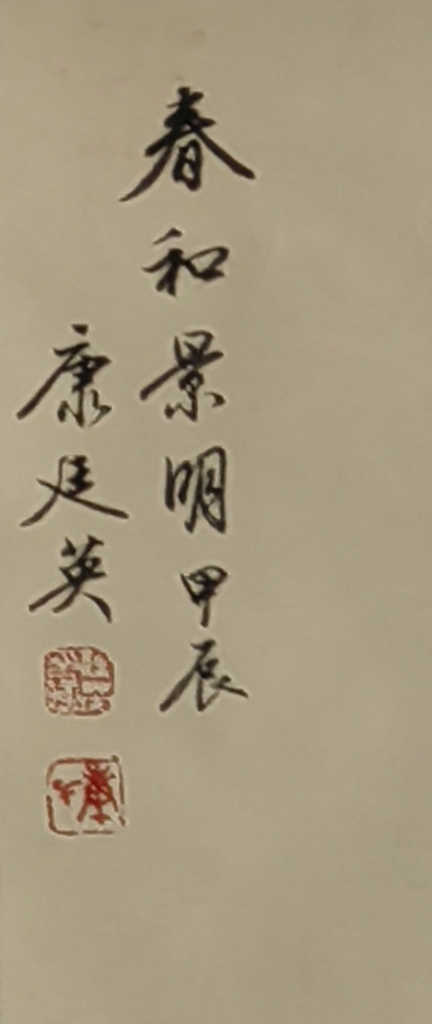 春和景明甲辰
康廷英